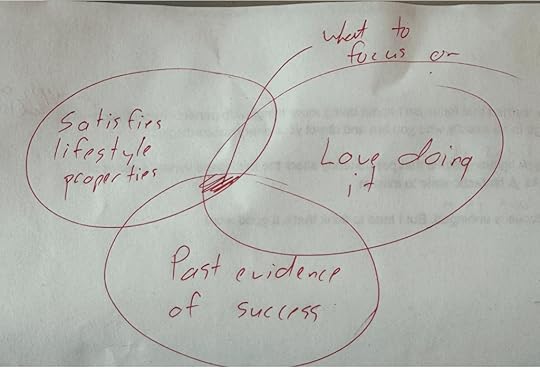 what to
focus on
Satisfies
lifestyle
properties
Love doing
it
Past evidence
of success